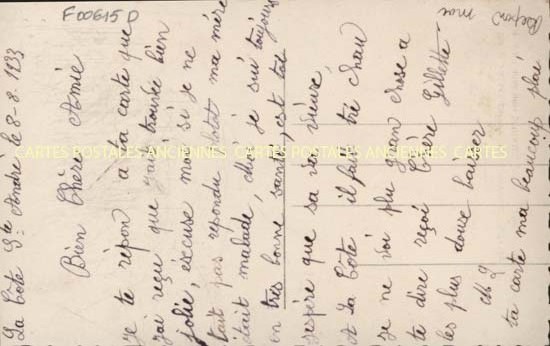 F00615D
Repon moi
La Côte St André le 8-8. 1933
Bien Chère Amie
je te répon a ta carte que
j'ai reçu que j'ai trouvée bien
jolie, éxcuse moi si je ne
tait pas repondu plutot ma mère
était malade, chai je sui toujours
en très bonne santé, est toi
j'espère que sa vas mieux,
A la Côte il fait trè chau
je ne voi plu gran chose a
te dire reçoi Chère Gillette
les plus doux baiser
ta carte ma beaucoup plai
CARTES POSTALES ANCIENNES CARTES POSTALES ANCIENNES CARTES POSTALES ANCIENNES CARTES